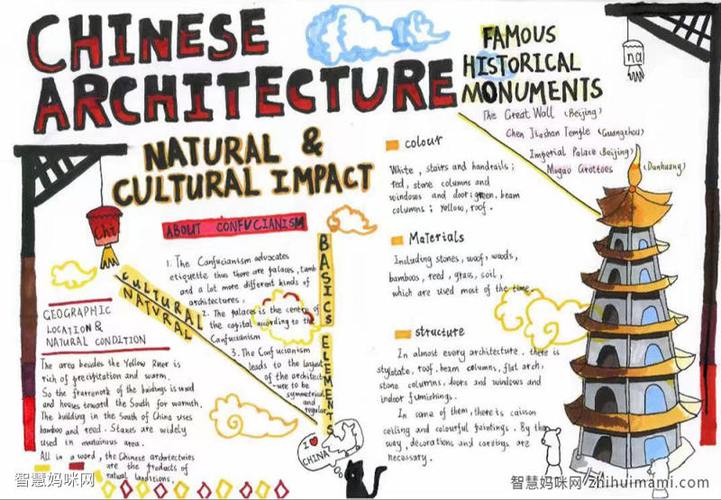 CHINESE
ARCHITECTURE
NATURAL &
CULTURAL IMPACT
FAMOUS
HISTORICAL
MONUMENTS
The Great Wall (Beijing)
Chen Temple (Guangzhou)
Imperial Palace (Beijing)
Mogao Grottoes (Dunhuang)
na
Chi
ABOUT CONFUCIANISM
1. The Confucianism advocates
etiquette thus there are palaces, tamb
and a lot more different kinds of
architectures.
2. The palaces is the centre of
the capital according to the
Confucianism
3. The Confucianism
leads to the largest
of the architect
-ure to be
symmetrical
and
regular
CULTURAL
NATURAL
BASICS ELEMENTS
GEOGRAPHIC
LOCATION &
NATURAL CONDITION
The area besides the Yellow River is
rich of precipitation and warm.
So the framework of the buildings is wood
and houses toward the South for warmth.
The building in the South of China uses
bamboo and reed. Stones are widely
used in area.
All in a word, the Chinese architectures
are the products of
natural conditions.
colour
White, stairs and handrails;
red, stone columns and
windows and door; green, beam
columns; yellow, roof.
Materials
Including stones, woods,
bamboos, reed, grass, soil,
which are used most of the time.
structure
In almost every architecture, there is
roof, beam columns, flat arch,
stone columns, doors and windows and
indoor furnishings.
In some of them, there is caison
ceiling and colourful paintings. By the
way, decorations and are
necessary.
I ♥
CHINA
智慧妈咪网
智慧妈咪网 zhihuimami.com